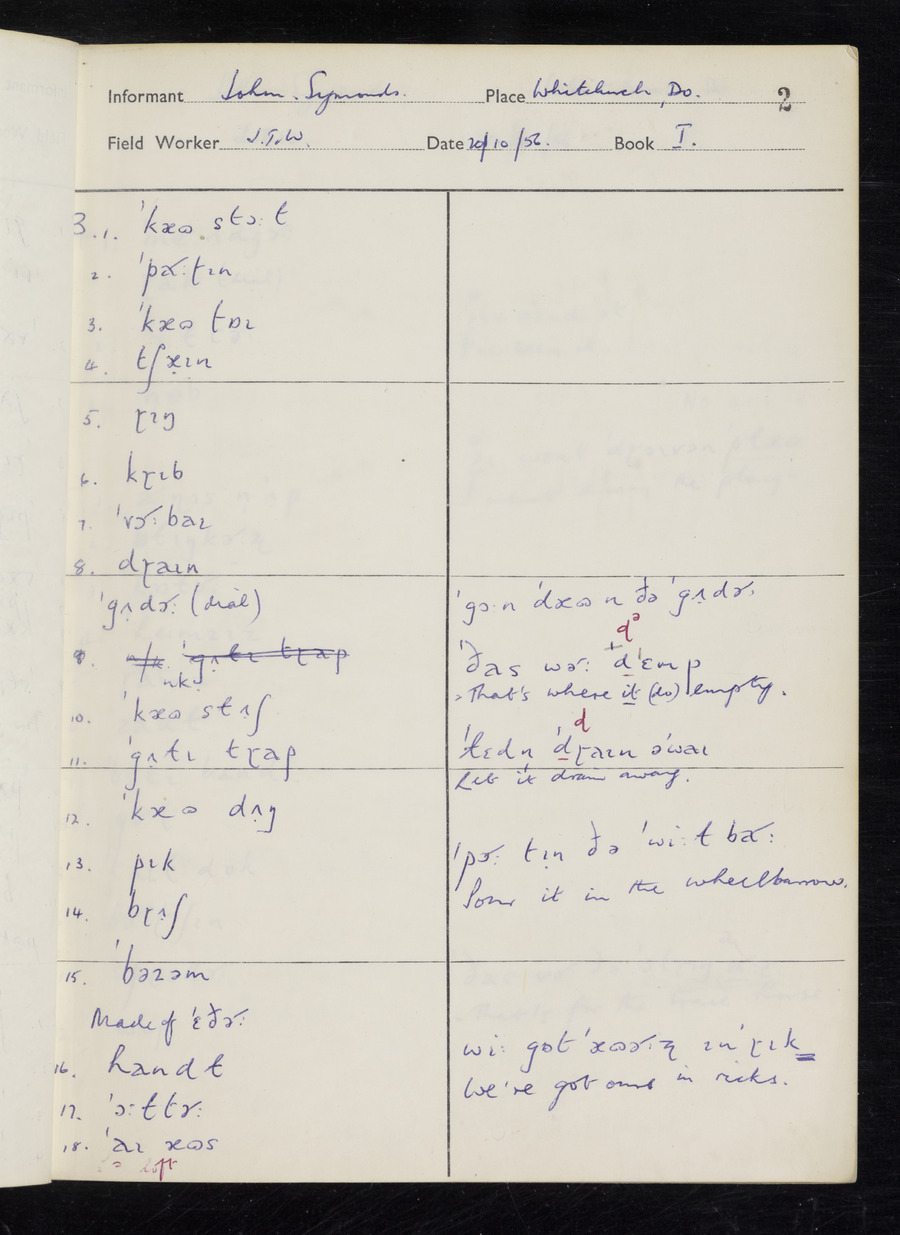 Informant John Symonds. Place Whitchurch, Do. 2
Field Worker J.T.W. Date 20/10/56. Book I.
3.1. ˈkæɷ stɔːt
2. ˈpɑ̆ːtɪn
3. ˈkæɷ tɒɪ
4. tʃæ̣ɪn
5. ɽɪŋ
6. kɽɪb
7. ˈvɔ̆ːbaɪ
8. dɽaɪn
ˈgʌ̣dɚː (dial)
9. nk.
10. ˈkæɷ stʌ̣ʃ
11. ˈgʌ̣tɪ tɽap
12. ˈkæɷ dʌ̣ŋ
13. pɪk
14. bɽʌ̣ʃ
15. ˈbəzəm
Made of ˈɛðɚː
16. handt
17. ˈɔːttɚː
18. ˈaɪ æɷs
loft
ˈgɔːn ˈdæɷn ðə ˈgʌ̣dɚː
dᵊ
ˈðas wɚː d ˈɛmp
That's where it (do) empty.
d
ˈlɛdn ˈdɽaɪn əˈwaɪ
Let it drain away.
ˈpɔ̆ː tɪn ðə ˈwiːt bɑ̆ː
Pour it in the wheelbarrow.
wiː gɒt ˈæɷɚːɳ ɪn ˈɽɪk
We've got ours in ricks.